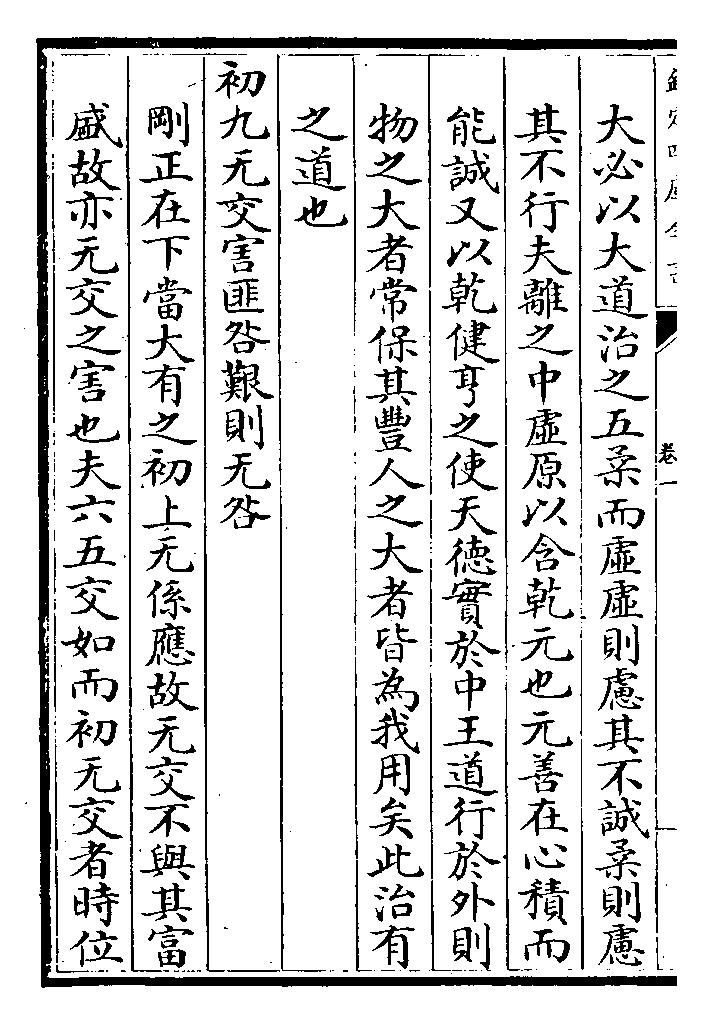 大必以大道治之五柔而虛虛則慮其不誠柔則慮
其不行夫離之中虛原以含乾元也元善在心積而
能誠又以乾健亨之使天德實於中王道行於外則
物之大者常保其豐人之大者皆為我用矣此治有
之道也
初九无交害匪咎艱則无咎
剛正在下當大有之初上无係應故无交不與其富
盛故亦无交之害也夫六五交如而初无交者時位
欽定四庫全書
卷一